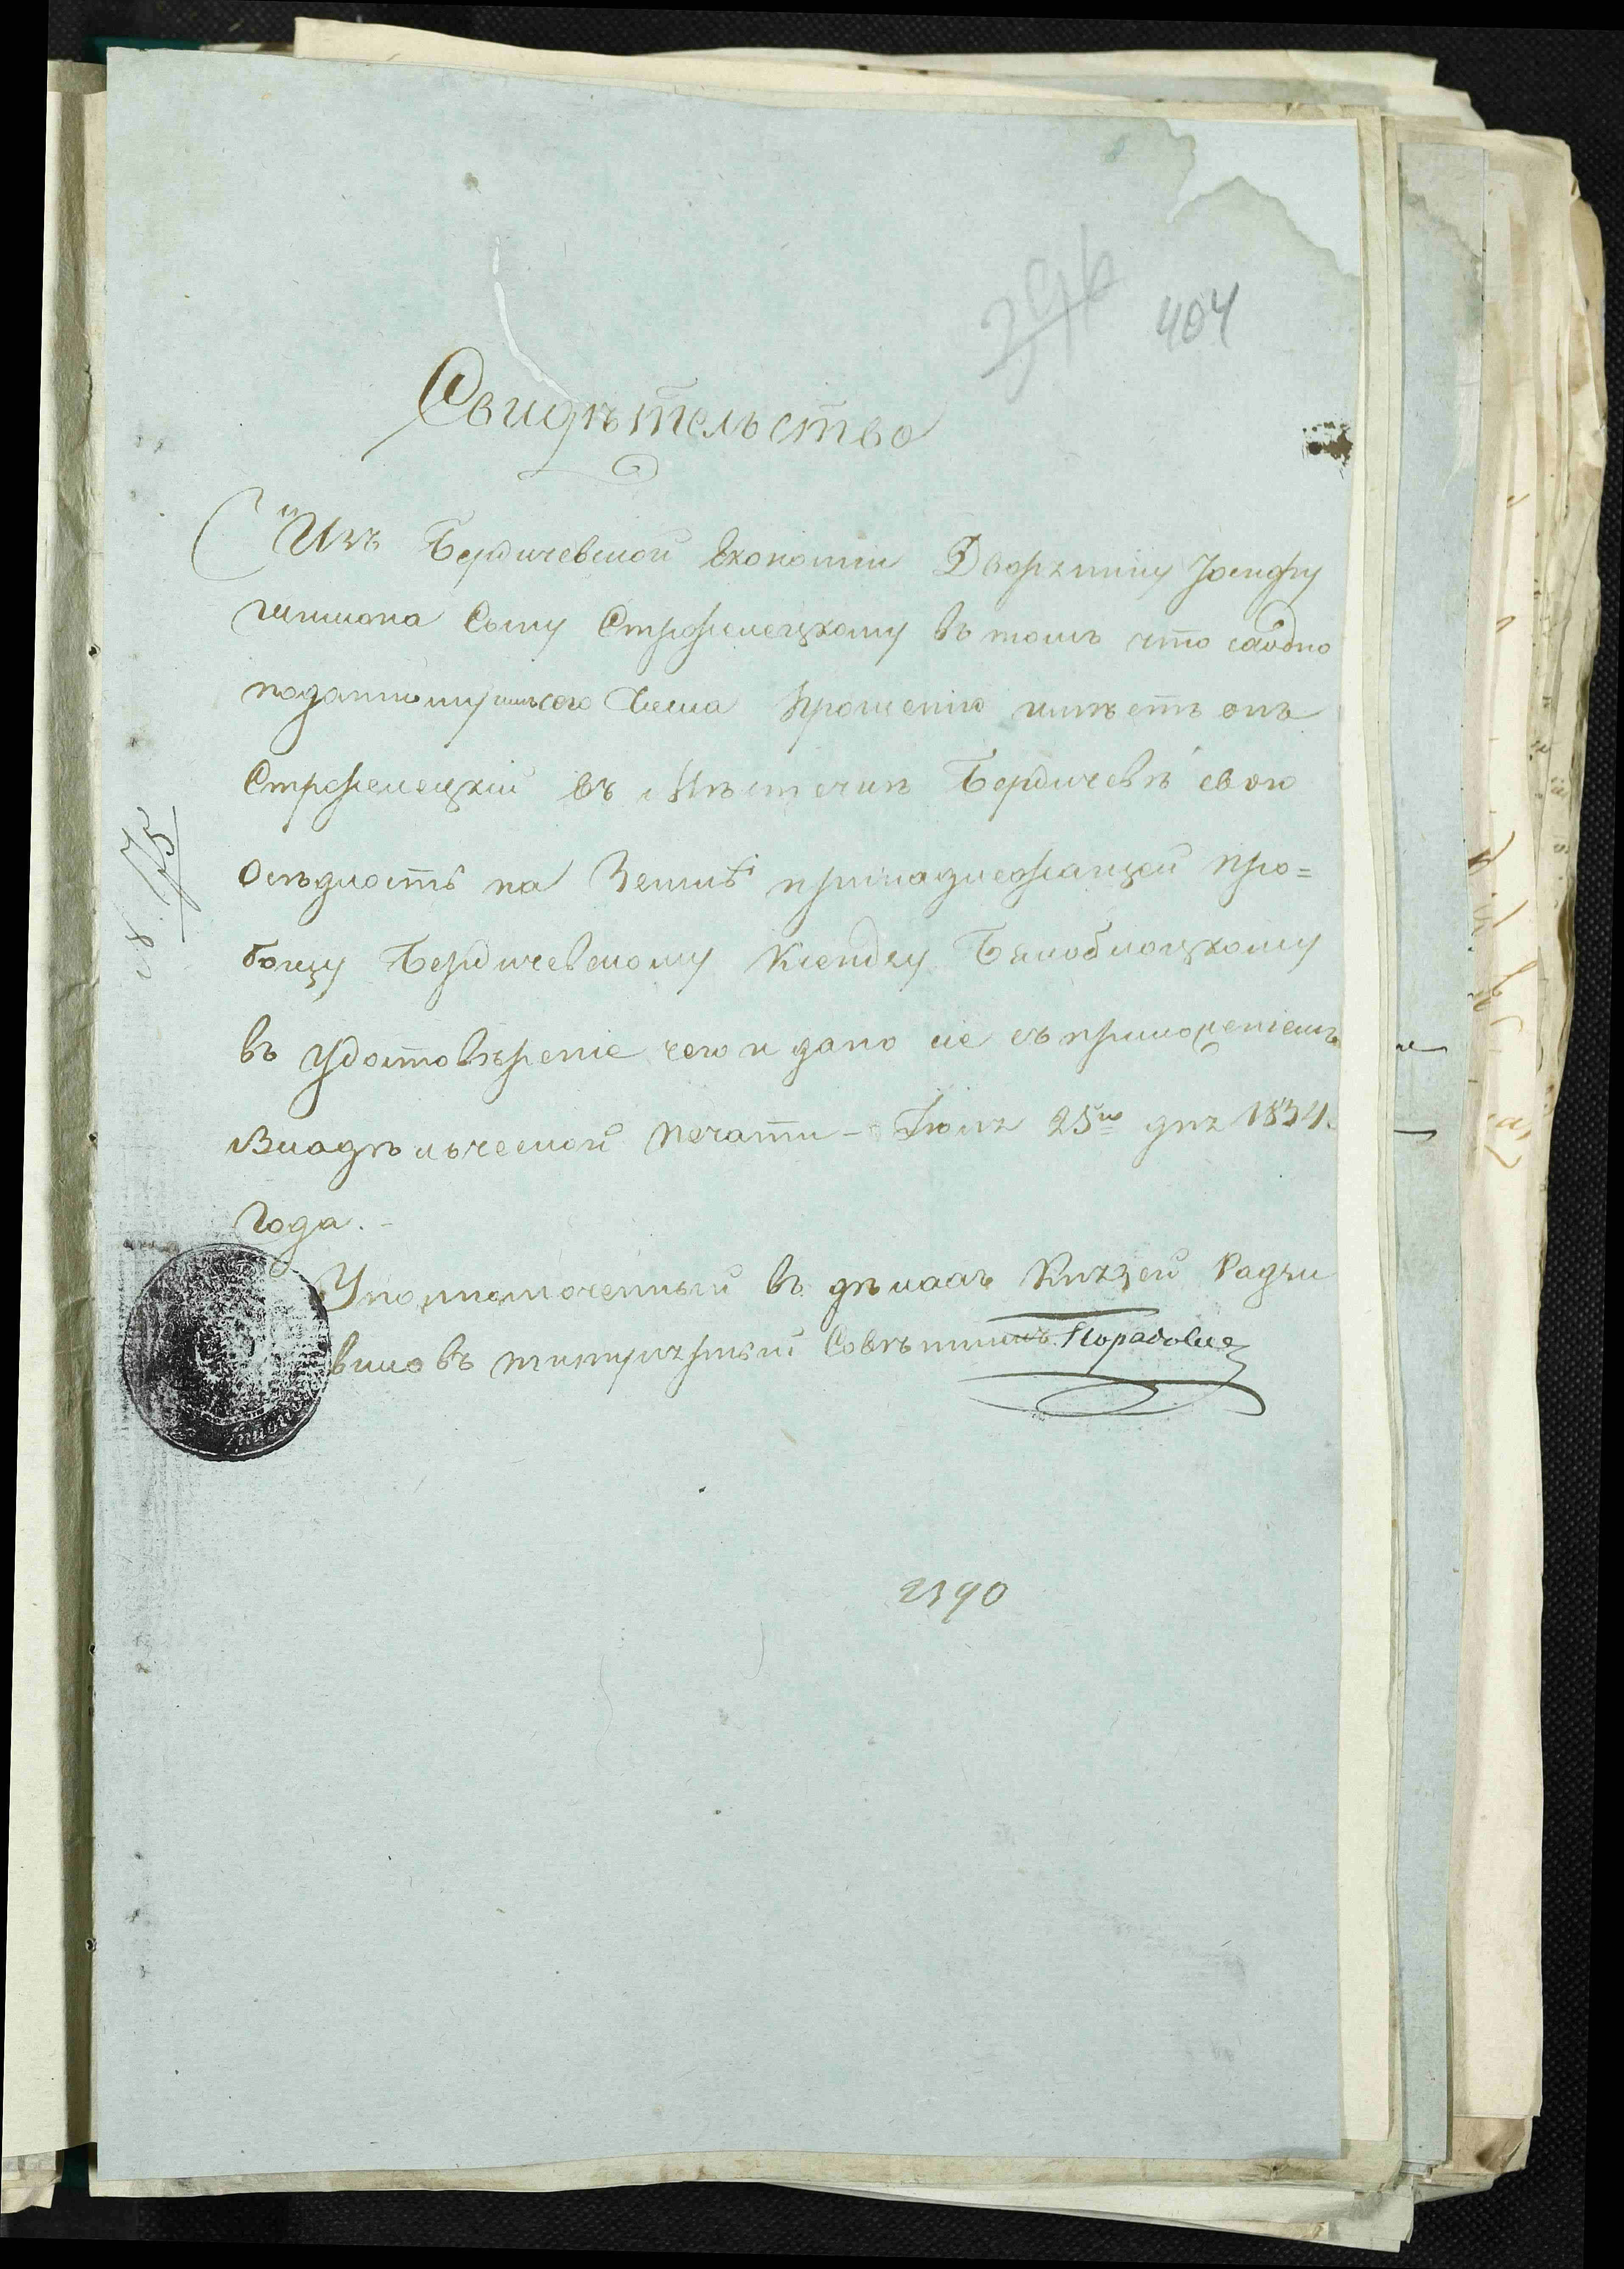 296 404
Свидѣтельство
Изъ Бердичевской Економіи Дворянину Іосифу
Шимона Сыну Стржелецкому въ томъ что сходно
поданному имъ сего Числа прошенію имѣетъ онъ
Стржелецкій въ Мѣстечкѣ Бердичевѣ свою
осѣдлость на Землѣ принадлежащей про=
бощу Бердичевскому Ксендзу
въ удостовѣреніе чего и дано сіе съ приложеніемъ
Владѣльческой печати - Іюля 25го дня 1834.
Года. -
Уполномоченный въ дѣлахъ Князей Радзи
виловъ титулярный Совѣтникъ
№. 75
2390